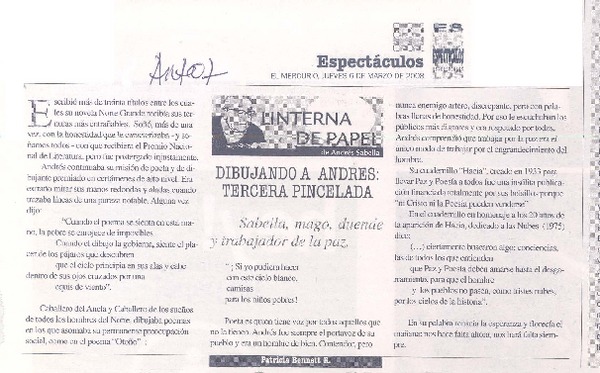 Espectáculos
EL MERCURIO, JUEVES 6 DE MARZO DE 2008
LINTERNA
DE PAPEL
de Andrés Sabella
DIBUJANDO A ANDRES:
TERCERA PINCELADA
Sabella, mago, duende
y trabajador de la paz.
Escribió más de treinta títulos entre los cua-
les su novela Norte Grande recibía sus ter-
nuras más entrañables. Soñó, más de una
vez, con la honestidad que le caracterizaba - y so-
ñamos todos - con que recibiera el Premio Nacio-
nal de Literatura, pero fue postergado injustamente.
Andrés continuaba su misión de poeta y de di-
bujante genuino en certámenes de alto nivel. Era
extraño mirar sus manos redondas y aladas cuando
trazaba líneas de una pureza notable. Alguna vez
dijo:
"Cuando el poema se sienta en esta ma-
no, la pobre se enrojece de imposibles.
Cuando el dibujo la gobierna, siente el pla-
cer de los pájaros que descubren
que el cielo principia en sus alas y cabe
dentro de sus ojos cruzados por una
espiga de viento".
Caballero del Ancla y Caballero de los sueños
de todos los hombres del Norte, dibujaba poemas
en los que asomaba su permanente preocupación
social, como en el poema "Otoño" :
"¡ Si yo pudiera hacer
con este cielo blanco,
camisas
para los niños pobres!
Poeta es quien tiene voz por todos aquellos que
no la tienen. Andrés fue siempre el portavoz de su
pueblo y era un hombre de bien. Contendor, pero
nunca enemigo artero, discrepante, pero con pala-
bras llenas de honestidad. Por eso le escuchaban los
públicos más diversos y era respetado por todos.
Andrés comprendió que trabajar por la poesía es el
único modo de trabajar por el engrandecimiento del
hombre.
Su cuadernillo "Hacia", creado en 1933 para
llevar Paz y Poesía a todos fue una insólita publica-
ción financiada totalmente por sus bolsillos, porque
"ni Cristo ni la Poesía pueden venderse".
En el cuadernillo en homenaje a los 20 años de
la aparición de Hacia, dedicado a las Nubes (1975)
dice:
(…) ciertamente buscaron algo: conciencias,
las de todos los que entienden
que Paz y Poesía deben amarse hasta el desga-
rramiento, para que el hombre
y los pueblos no pasen, como tristes nubes,
por los cielos de la historia".
En su palabra renacía la esperanza y florecía el
mañana: nos hace falta ahora, nos hará falta siem-
pre.
Patricia Bennett R.